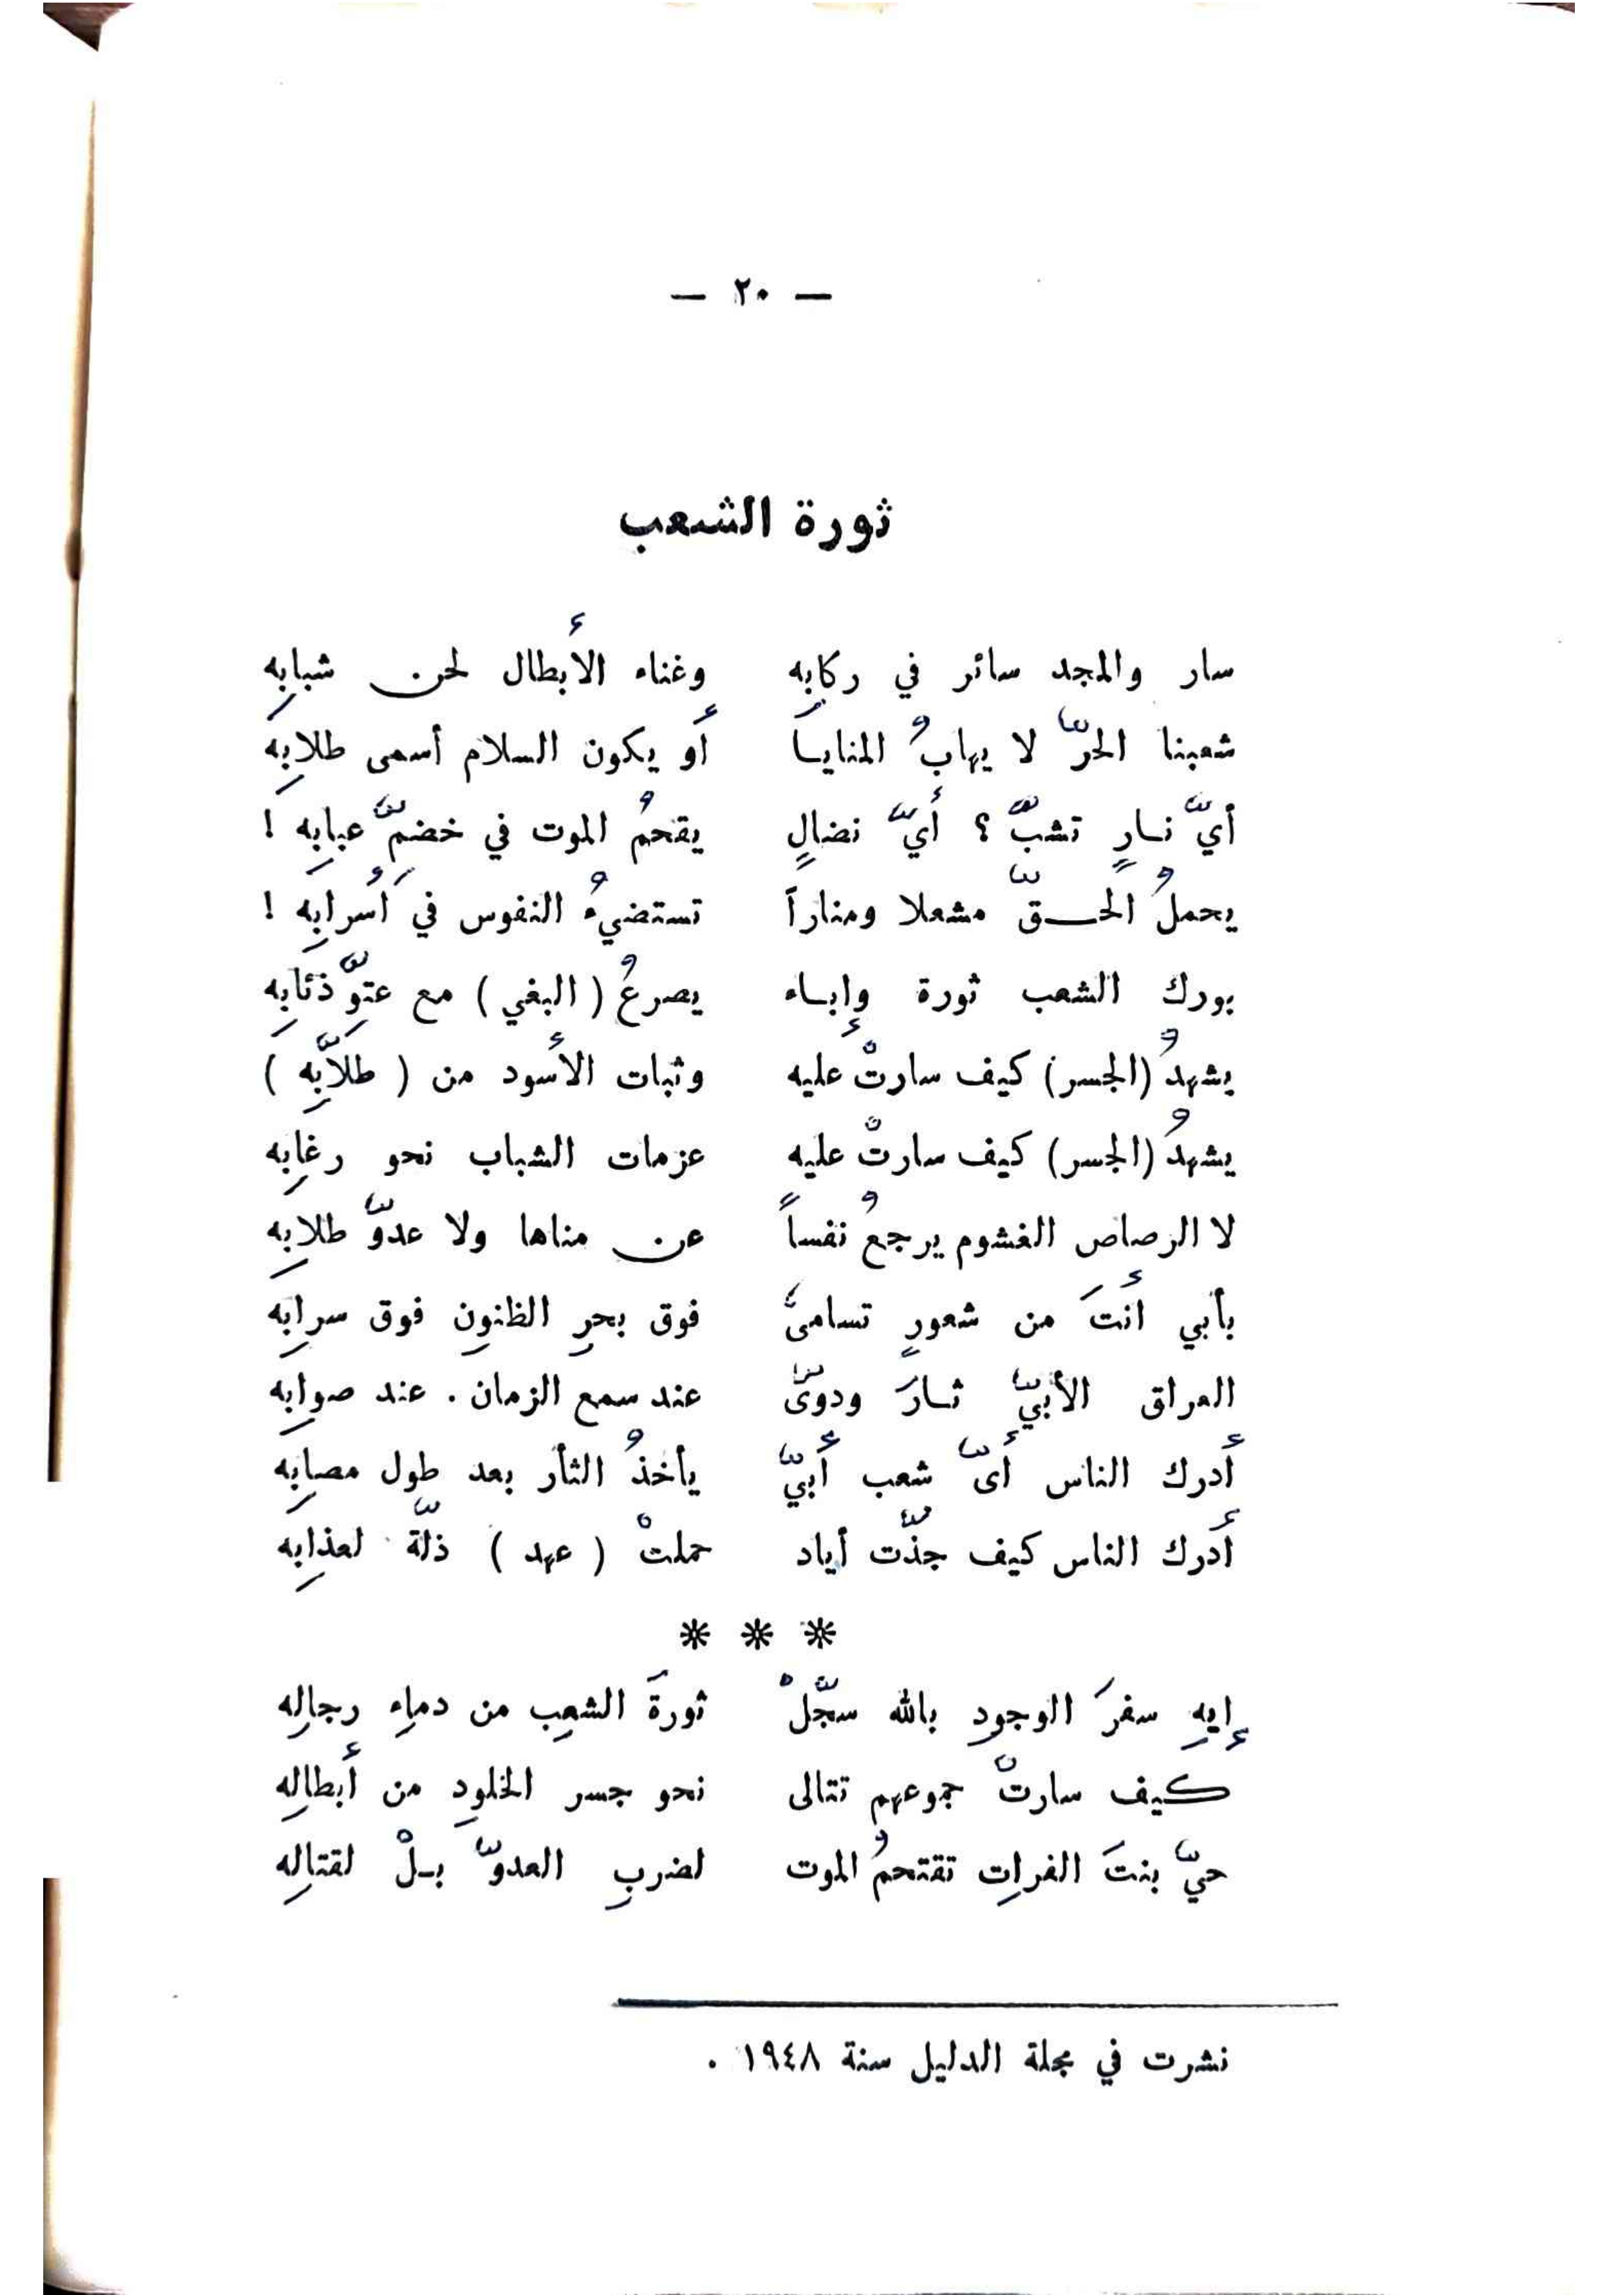 — ٢٠ —
ثورة الشعب
سار والمجد سائر في ركابِه وغناء الأبطال لحن شبابِه
شعبنا الحرّ لا يهابُ المنايا أو يكون السلام أسمى طلابِه
أيّ نارٍ تشبّ ؟ أيّ نضالٍ يقحمُ الموت في خضمِّ عبابِه !
يحملُ الحقّ مشعلا ومناراً تستضيءُ النفوس في أسرابِه !
بورك الشعب ثورة وإباء يصرعُ ( البغي ) مع عتوِّ ذئابِه
يشهدُ (الجسر) كيف سارتْ عليه وثبات الأسود من ( طلاّبِه )
يشهدُ (الجسر) كيف سارتْ عليه عزمات الشباب نحو رغابِه
لا الرصاص الغشوم يرجعُ نفساً عن مناها ولا عدوّ طلابِه
بأبي أنتَ من شعورٍ تسامىَ فوق بحرِ الظنونِ فوق سرابِه
العراق الأبيّ ثارَ ودوىّ عند سمع الزمان . عند صوابِه
أدرك الناس أىّ شعب أبيّ يأخذُ الثأر بعد طول مصابِه
أدرك الناس كيف جذّت أياد حملتْ ( عهد ) ذلّة لعذابِه
* * *
إيهِ سفرَ الوجودِ بالله سجّلْ ثورةَ الشعبِ من دماءِ رجالِه
كيف سارتْ جموعهم تتالى نحو جسر الخلودِ من أبطالِه
حيّ بنتَ الفراتِ تقتحمُ الموت لضربِ العدوّ بلْ لقتالِه
نشرت في مجلة الدليل سنة ١٩٤٨ .